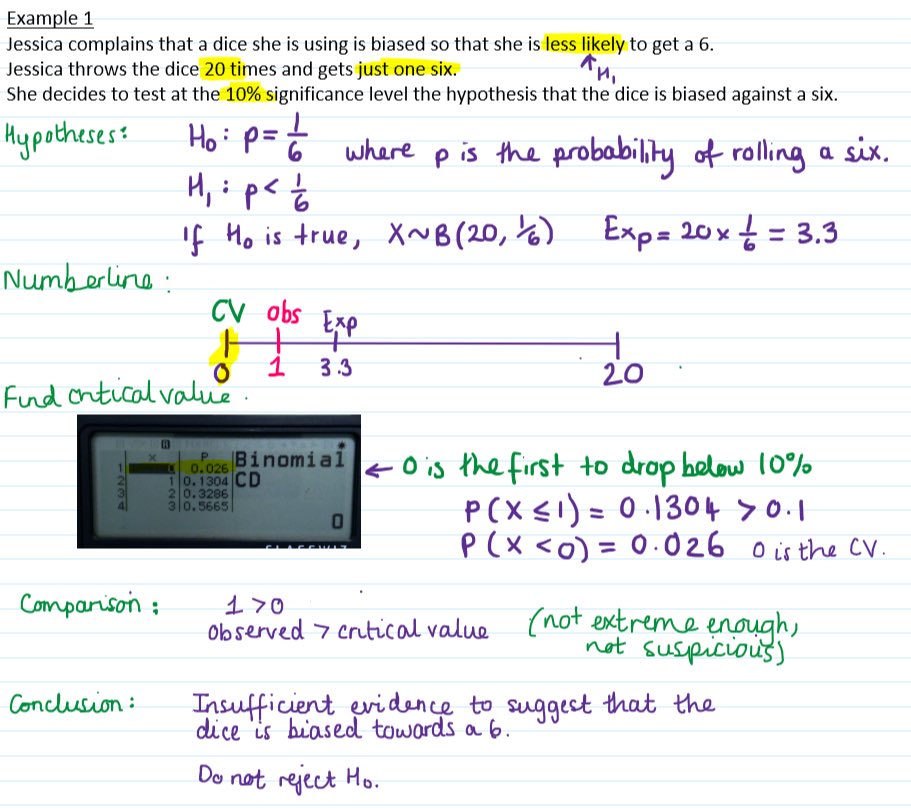 Example 1
Jessica complains that a dice she is using is biased so that she is less likely to get a 6.
↑H₁
Jessica throws the dice 20 times and gets just one six.
She decides to test at the 10% significance level the hypothesis that the dice is biased against a six.
Hypotheses: H₀: p = 1/6 where p is the probability of rolling a six.
H₁: p < 1/6
If H₀ is true, X~B(20, 1/6) Exp = 20 × 1/6 = 3.3
Numberline:
CV obs Exp
0 1 3.3 20
Find critical value.
R
x P Binomial
1 0.026 CD
2 1 0.1304
3 2 0.3286
4 3 0.5665
0
← 0 is the first to drop below 10%
P(X ≤ 1) = 0.1304 > 0.1
P(X < 0) = 0.026 0 is the CV.
Comparison: 1 > 0
Observed > critical value (not extreme enough,
not suspicious)
Conclusion: Insufficient evidence to suggest that the
dice is biased towards a 6.
Do not reject H₀.